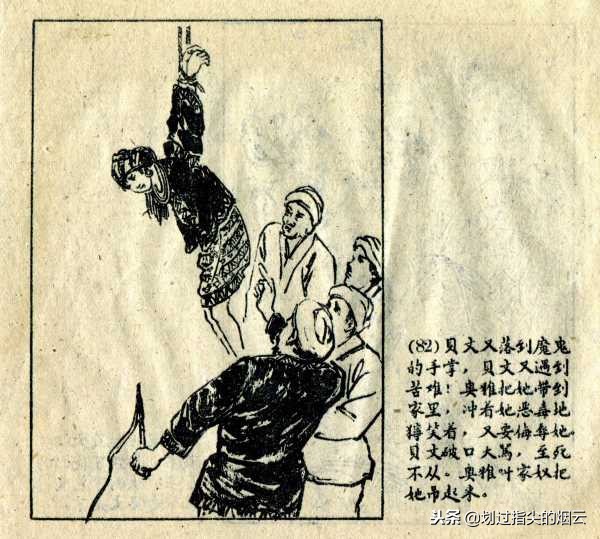 (82)贝文又落到魔鬼
的手掌，贝文又遇到
苦难！奥雅把她带到
家里，冲着她恶毒地
狞笑着，又要侮辱她。
贝文破口大骂，至死
不从。奥雅叫家奴把
她吊起来。
头条@划过指头的烟云